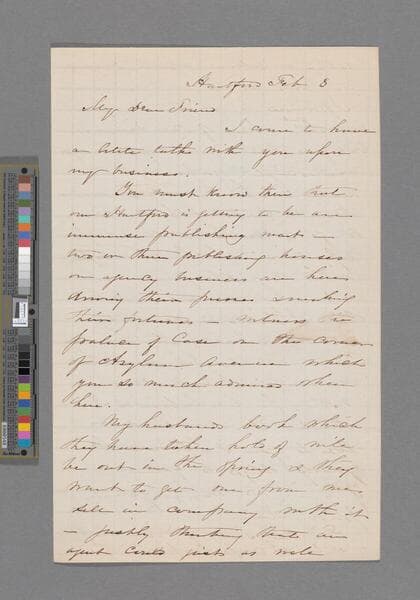 Hartford Feb 8
My Dear Friend
I come to have
a little talk with you upon
my business.
You must know then that
our Hartford is getting to be an
immense publishing mart —
two or three publishing houses
on agency business are here
driving their presses & making
their fortunes — witness the
palace of Case on the corner
of Asylum Avenue which
you so much admired when
here.
My husbands book which
they have taken hold of will
be out in the Spring & they
want to get one from me
sell in company with it
— justly thinking that an
agent could just as well